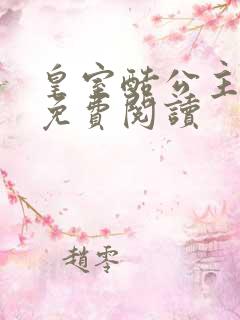 皇室酷公主
免費閱讀
趙零